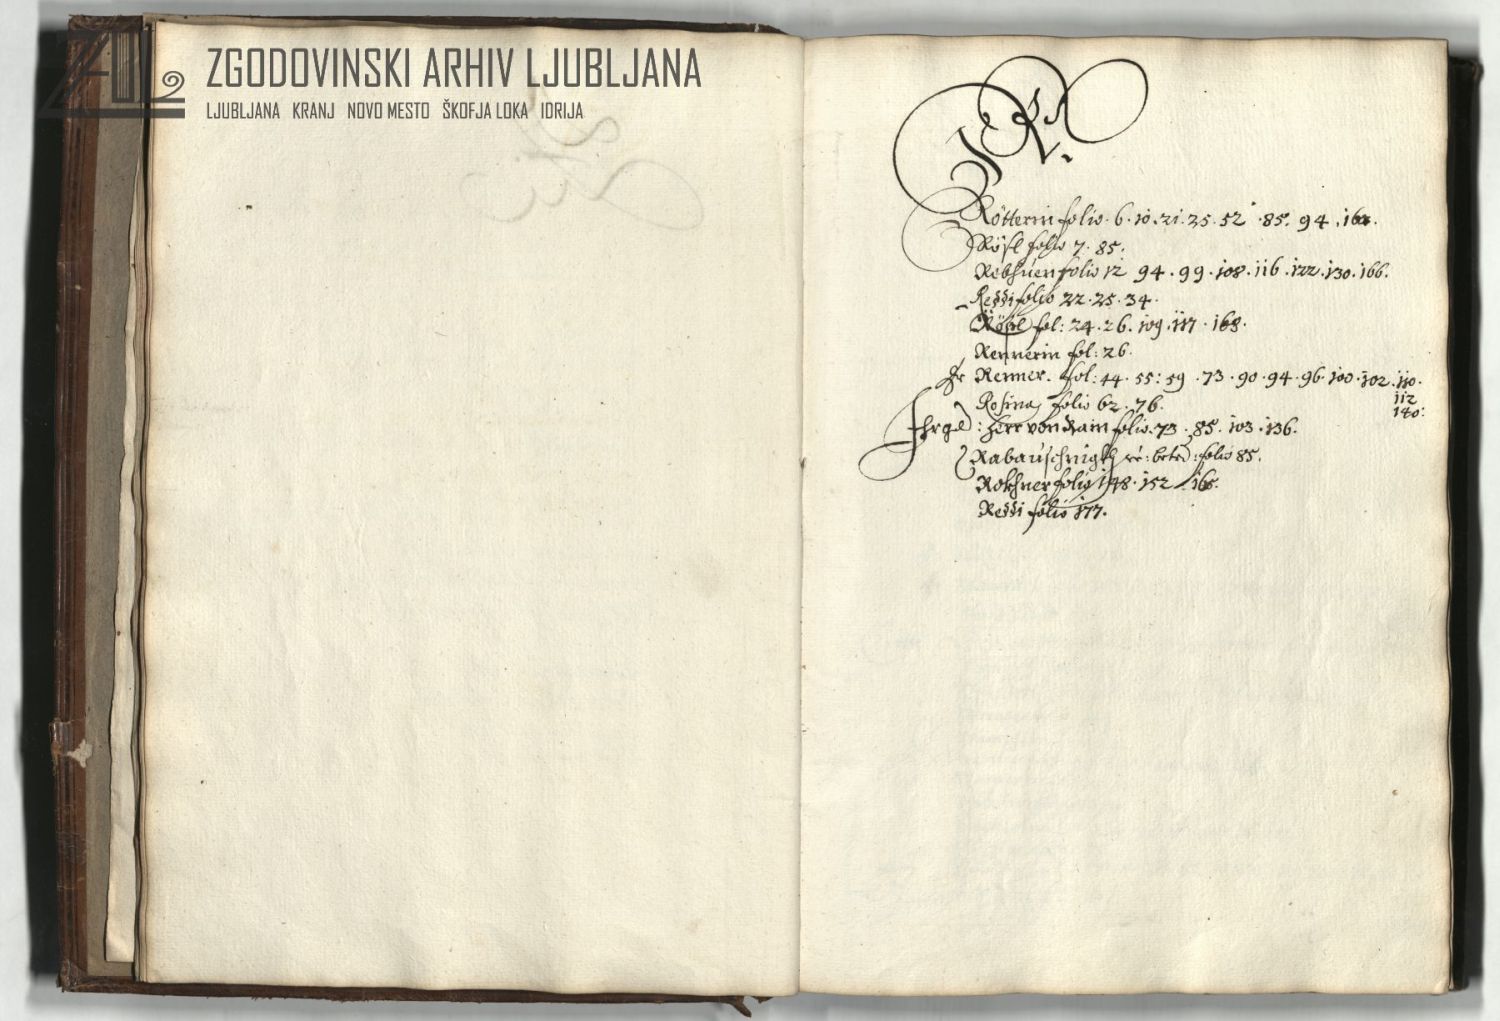 ZGODOVINSKI ARHIV LJUBLJANA
LJUBLJANA KRANJ NOVO MESTO ŠKOFJA LOKA IDRIJA
R.
Rötterin folio 6. 10. 21. 25. 52. 85. 94.
Rösl folio 7. 85.
Rebhuen folio 12 94. 99. 108. 116. 122. 130. 166.
Ressi folio 22. 25. 34.
Rösl fol: 24. 26. 109. 117. 168.
Rennerin fol: 26.
Jr Renner. fol: 44. 55: 59. 73. 90. 94. 96. 100. 102. 110.
112
140:
Rosina folio 62. 76.
Herr von Rain folio. 73. 85. 103. 136.
Rabauschnigkh folio 85.
Rokhner folio 148. 152. 165.
Ressi folio 177.